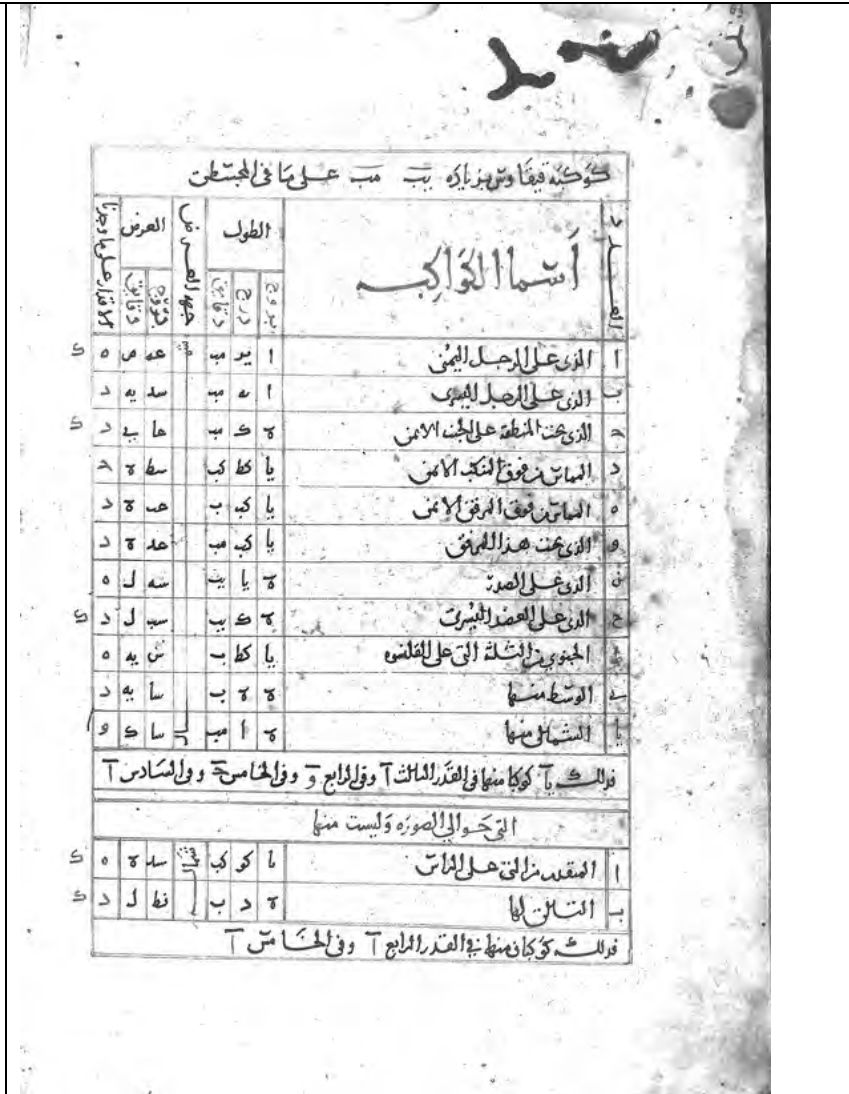 كوكبة قيقاوس بزيادة يب مب على ما في المجسطي
العدد أسما الكواكب الطول جهة العرض العرض الاقدار على ما وجدنا
بروج درج دقايق دقايق
ا الذى على الرجل اليمنى ا يد مب عه م ه ك
ب الذى على الرجل اليسرى ا مب سد يه د
ج الذى تحت المنطقة على الجنب الايمن ة ك مب عا ي د ك
د المماس من فوق المنكب الايمن يا كط كب سط ة ج
ه المماس من فوق المرفق الايمن يا كب ب عب ة د
و الذى تحت هذا المرفق يا كب مب عد ة د
ز الذى على الصدر ة يا يب سه ل ه
ح الذى على العضد اليسرى ة ك يب سب ل د ك
ط الجنوبي من الثلثة التى على القلنسوه يا كط ب س يه ه
ي الوسط منها ة ة ب سا يه د
يا الشمالى منها ة ا مب سا ك و
فذلك يا كوكبا منها فى القدر الثالث ا وفى الرابع و وفى الخامس ج وفى السادس ا
التى حوالي الصوره وليست منها
ا المتقدم من التى على الراس يا كو كب شمال سد ة ه ك
ب التالى لها ة د ب نط ل د ك
فذلك كوكبان منها في القدر الرابع ا وفى الخامس ا